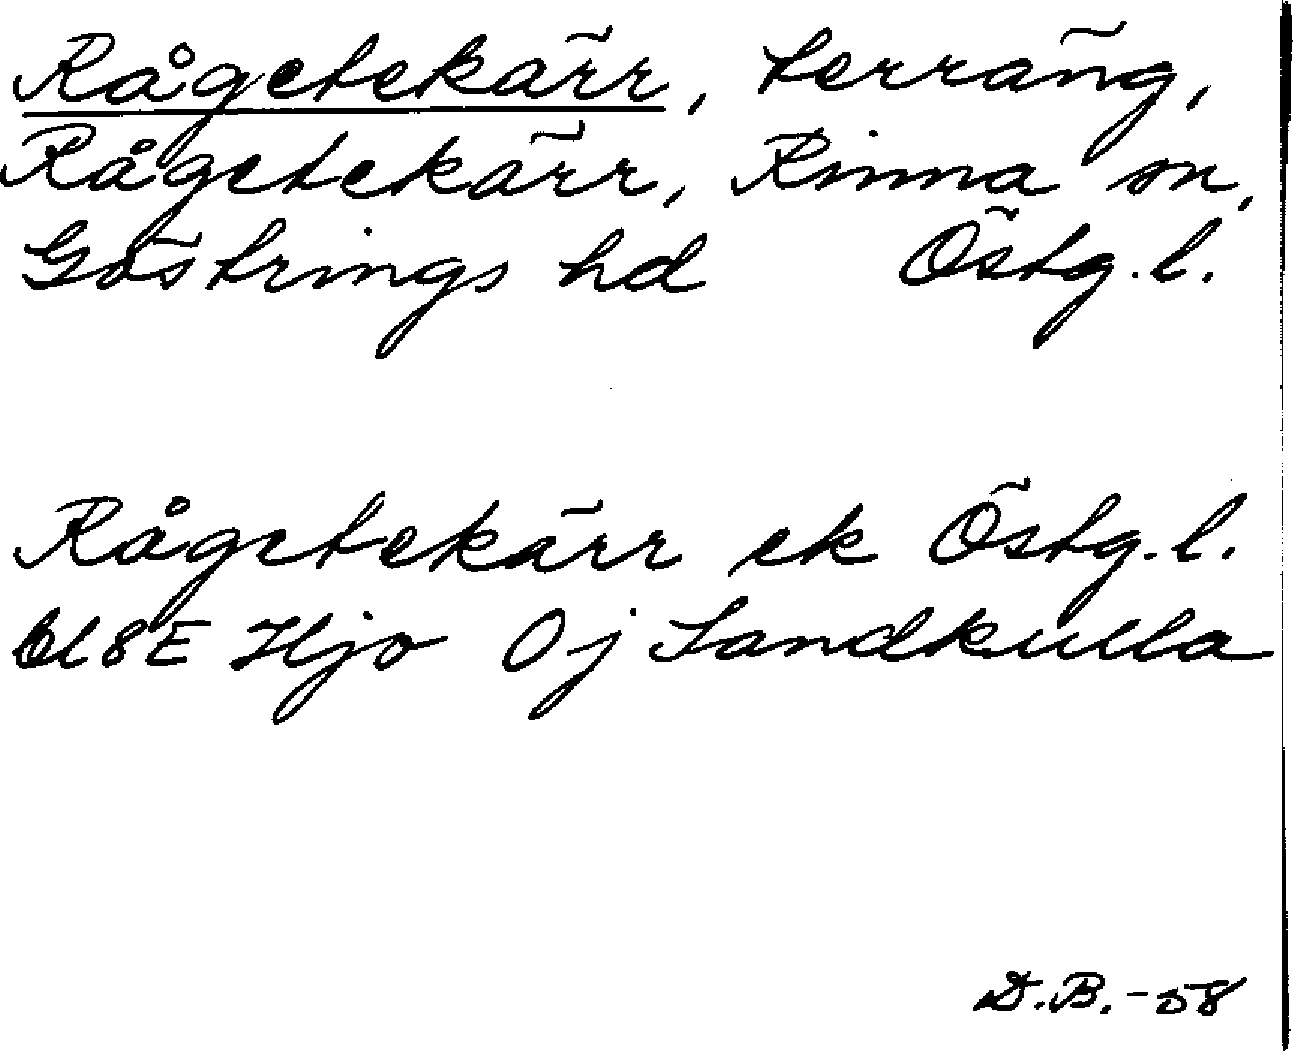 Rågetekärr, terräng,
Rågetekärr, Rinna sn,
Göstrings hd Östg.l.
Rågetekärr ek Östg.l.
bl 8E Hjo Oj Sandkulla
D.B.-58